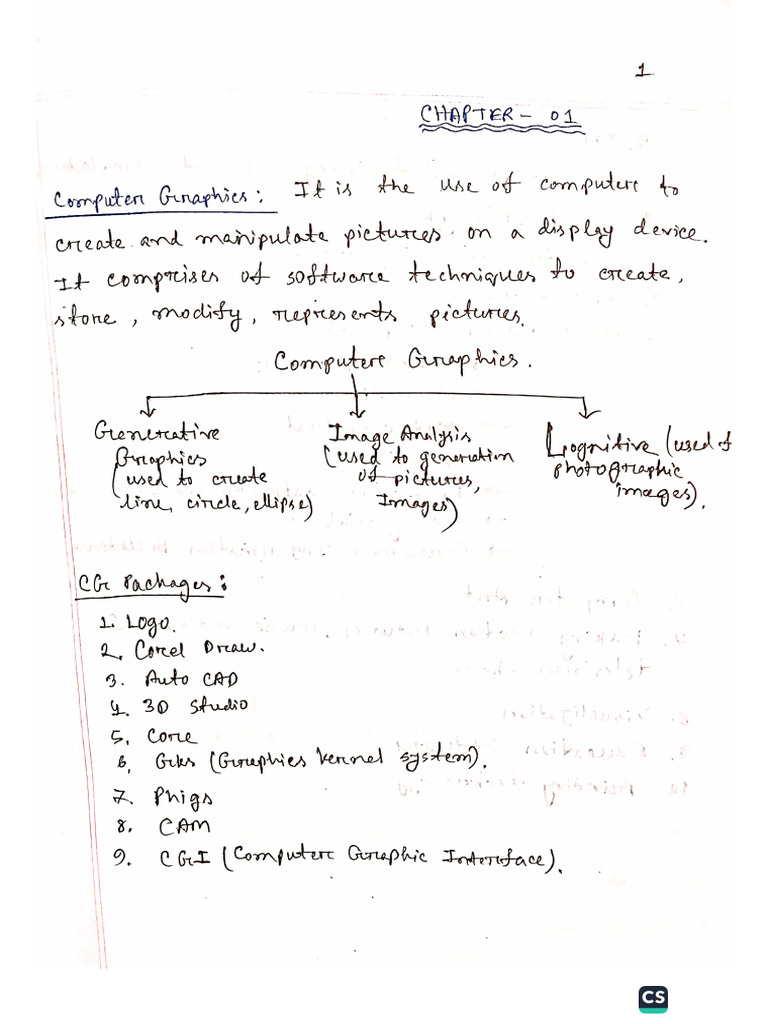 1
CHAPTER - 01
Computer Graphics: It is the use of computer to
create and manipulate pictures on a display device.
It comprises of software techniques to create,
store, modify, represents pictures.
Computer Graphics.
Generative Graphics (used to create line, circle, ellipse)
Image Analysis (used to generation of pictures, Images)
Cognitive (used of photographic images).
CG Packages:
1. Logo.
2. Corel Draw.
3. Auto CAD
4. 3D Studio
5. Core
6. Gks (Graphics kernel system).
7. Phigs
8. CAM
9. CGI (Computer Graphic Interface).
CS